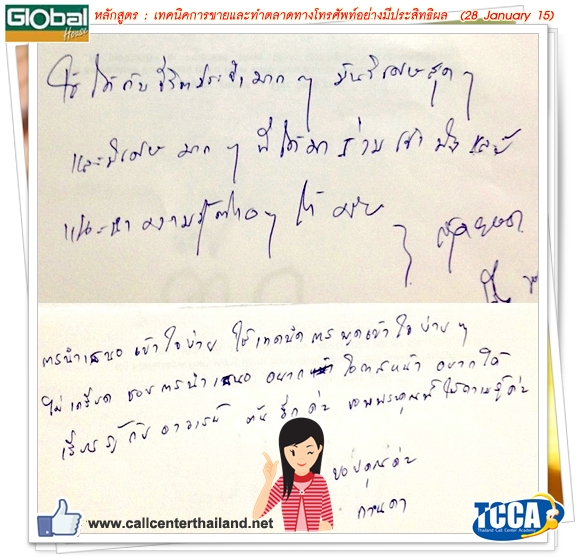 GlObal
House
หลักสูตร : เทคนิคการขายและทำตลาดทางโทรศัพท์อย่างมีประสิทธิผล (28 January 15)
ใช้ได้กับชีวิตประจำมาก ๆ มันวิเศษสุด ๆ
และพิเศษ มาก ๆ ที่ได้มาร่วมเข้าฟัง และ
แนะนำความรู้ต่าง ๆ ให้
สุดยอด
การนำเสนอ เข้าใจง่าย ใช้เทคนิค การพูดเข้าใจง่าย ๆ
ไม่เครียด ชอบการนำเสนอ อยาก โอกาสหน้า อยากให้
เรียนรู้กับ อาจารย์ อีกค่ะ ขอบพระคุณที่ให้ความรู้ค่ะ
ขอบคุณค่ะ
กานดา
www.callcenterthailand.net
TCCA
Thailand Call Center Academy